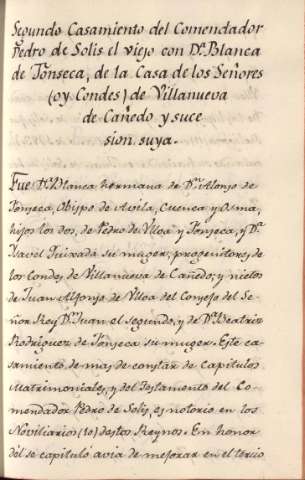 Segundo Casamiento del Comendador
Pedro de Solis el viejo con Dª. Blanca
de Fonseca, de la Casa de los Señores
(oy Condes) de Villanueva
de Cañedo y suce
sion suya.
Fue Dª. Blanca hermana de Dⁿ. Alonso de
Fonseca, Obispo de Avila, Cuenca y Osma,
hijos los dos, de Pedro de Ulloa y Fonseca, y Dª.
Isavel Quixada su muger, progenitores, de
los Condes de Villanueva de Cañedo; y nietos
de Juan Alfonso de Ulloa del Consejo del Se-
ñor Rey Dⁿ. Juan el Segundo, y de Dª. Beatriz
Rodriguez de Fonseca su muger. Este ca-
samiento, de mas, de constar de Capitulos
Matrimoniales, y del Testamento del Co-
mendador Pedro de Solis, es notorio en los
Noviliarios (10) destos Reynos. En honor
dél se capituló avia de mejorar en el tercio